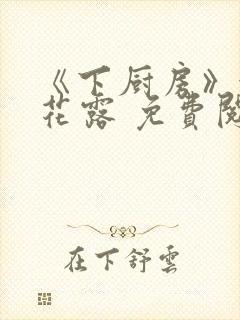 《下厨房》
花露 免費閱
在下舒雲